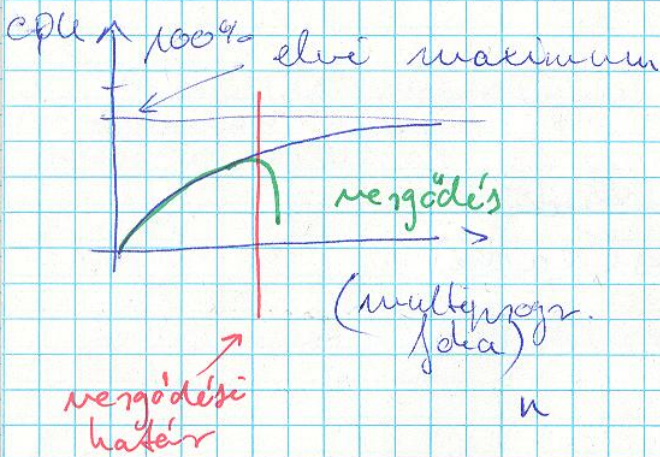 cpu 100%
elvi maximum
vergődés
(multiprogr.
foka)
n
vergődési
határ